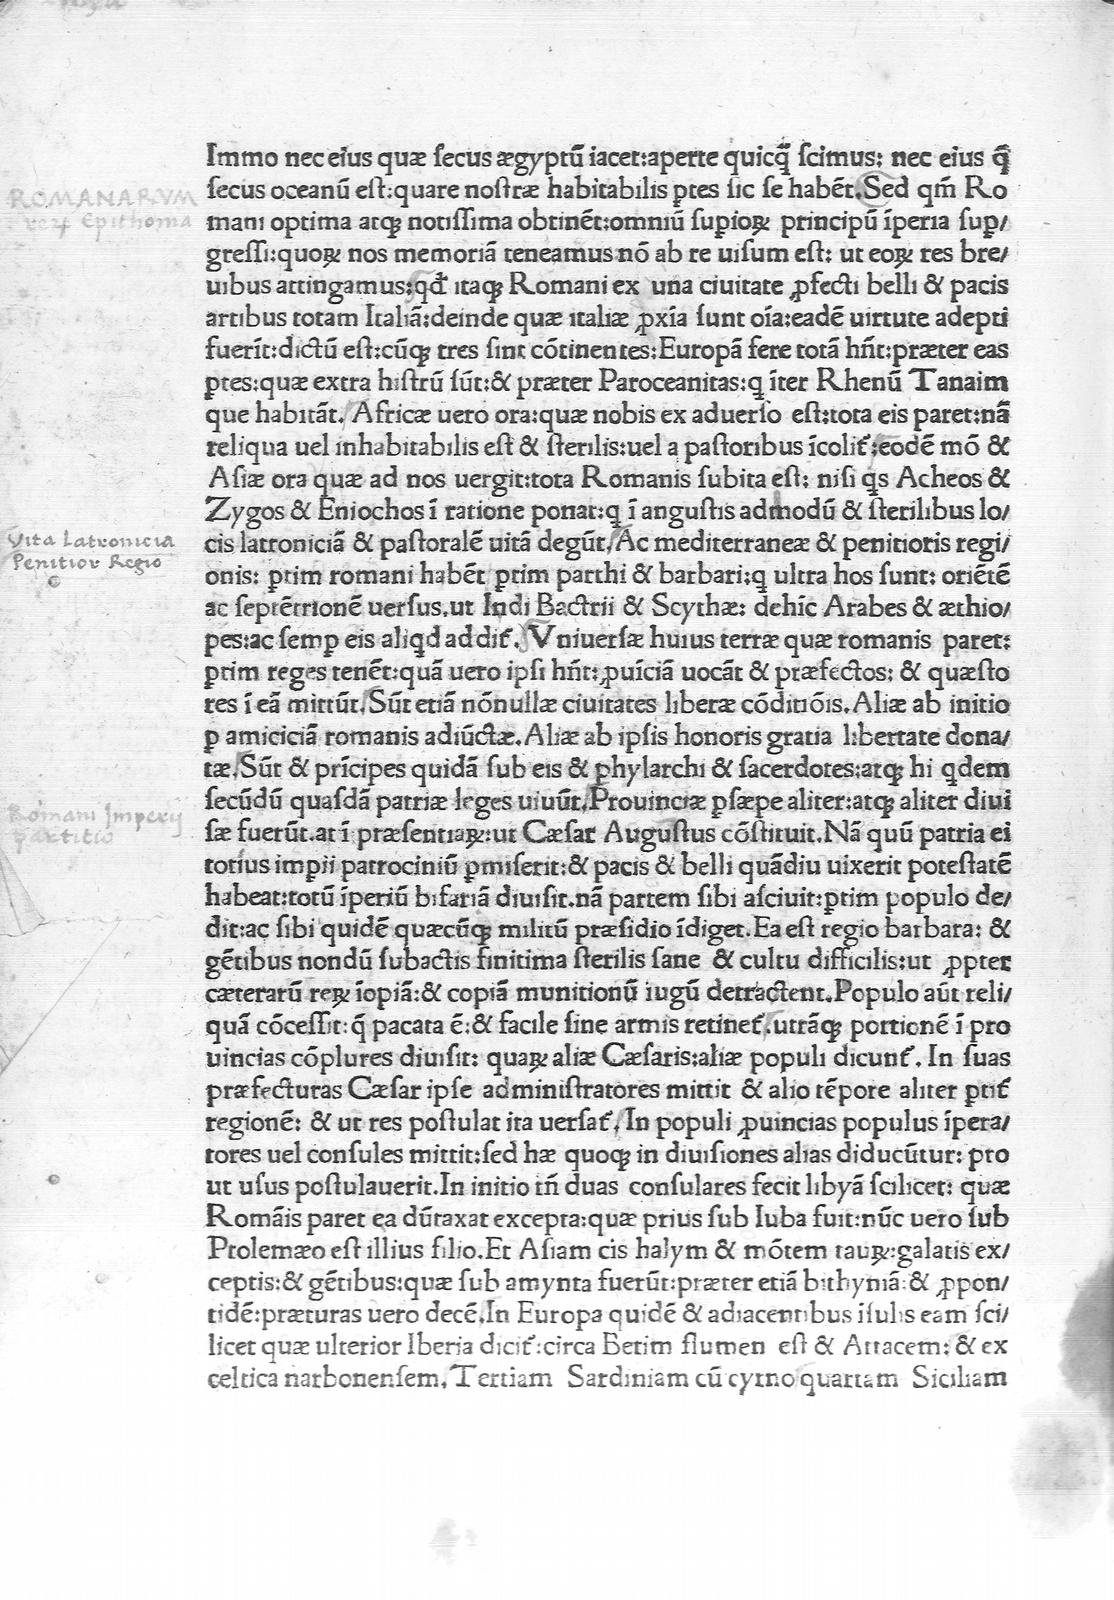 Immo nec eius quæ ſecus ægyptū iacet:aperte quicq̄ ſcimus: nec eius q̄
ROMANARVM
ſecus oceanū eſt:quare noſtræ habitabilis ꝑtes ſic ſe habēt.Sed qm̄ Ro
reꝝ Epithoma
mani optima atqꝫ notiſſima obtinēt:omniū ſuꝑioꝝ principū īperia ſuꝑ/
greſſi:quoꝝ nos memoriā teneamus nō ab re uiſum eſt: ut eoꝝ res bre/
uibus attingamus:qd̄ itaqꝫ Romani ex una ciuitate ꝓfecti belli & pacis
artibus totam Italiā:deinde quæ italiæ ꝓxīa ſunt oīa:eadē uirtute adepti
fuerīt:dictū eſt:cūqꝫ tres ſint cōtinentes:Europā fere totā hn̄t:præter eas
ꝑtes:quæ extra hiſtrū ſūt:& præter Paroceanitas:q īter Rhenū Tanaim
que habitāt. Africæ uero ora:quæ nobis ex aduerſo eſt:tota eis paret:nā
reliqua uel inhabitabilis eſt & ſterilis:uel a paſtoribus īcolit᷑:eodē mō &
Aſiæ ora quæ ad nos uergit:tota Romanis ſubita eſt: niſi qs Acheos &
Zygos & Eniochos ī ratione ponat:q ī anguſtis admodū & ſterilibus lo/
Vita Latronicia
cis latroniciā & paſtoralē uitā degūt. Ac mediterraneæ & penitioris regi/
Penitior Regio
onis: ꝑtim romani habēt ꝑtim parthi & barbari:q ultra hos ſunt: oriētē
ac ſeptētrionē uerſus.ut Indi Bactrii & Scythæ: dehīc Arabes & æthio/
pes:ac ſemꝑ eis aliqd addit᷑. Vniuerſæ huius terræ quæ romanis paret:
ꝑtim reges tenēt:quā uero ipſi hn̄t:ꝓuīciā uocāt & præfectos: & quæſto
res ī eā mittūt. Sūt etiā nōnullæ ciuitates liberæ cōditiōis. Aliæ ab initio
ꝑ amiciciā romanis adiūctæ. Aliæ ab ipſis honoris gratia libertate dona/
tæ. Sūt & prīcipes quidā ſub eis & phylarchi & ſacerdotes:atqꝫ hi qdem
ſecūdū quaſdā patriæ leges uiuūt. Prouinciæ ꝑſæpe aliter:atqꝫ aliter diui
Romani Imperij
ſæ fuerūt.at ī præſentiaꝝ:ut Cæſar Auguſtus cōſtituit.Nā quū patria ei
partitio
totius impii patrociniū ꝑmiſerit:& pacis & belli quādiu uixerit poteſtatē
habeat:totū īperiū bifariā diuiſit.nā partem ſibi aſciuit:ꝑtim populo de/
dit:ac ſibi quidē quæcūqꝫ militū præſidio īdiget. Ea eſt regio barbara: &
gētibus nondū ſubactis finitima ſterilis ſane & cultu difficilis:ut ꝓpter
cæterarū reꝝ īopiā:& copiā munitionū iugū detractent. Populo aūt reli/
quā cōceſſit: q̄ pacata ē:& facile ſine armis retinet᷑.utrāqꝫ portionē ī pro
uincias cōplures diuiſit: quaꝝ aliæ Cæſaris:aliæ populi dicunt᷑. In ſuas
præfecturas Cæſar ipſe adminiſtratores mittit & alio tēpore aliter ꝑtit᷑
regionē: & ut res poſtulat ita uerſat᷑. In populi ꝓuincias populus īpera/
tores uel conſules mittit:ſed hæ quoqꝫ in diuiſiones alias diducūtur: pro
ut uſus poſtulauerit.In initio tn̄ duas conſulares fecit libyā ſcilicet: quæ
Romāis paret ea dūtaxat excepta:quæ prius ſub Iuba fuit:nūc uero ſub
Ptolemæo eſt illius filio.Et Aſiam cis halym & mōtem tauꝝ:galatis ex/
ceptis:& gētibus:quæ ſub amynta fuerūt:præter etiā bithyniā:& ꝓpon/
tidē:præturas uero decē.In Europa quidē & adiacentibus iſulis eam ſci/
licet quæ ulterior Iberia dicit᷑:circa Betim flumen eſt & Attacem: & ex
celtica narbonenſem. Tertiam Sardiniam cū cyrno quartam Siciliam